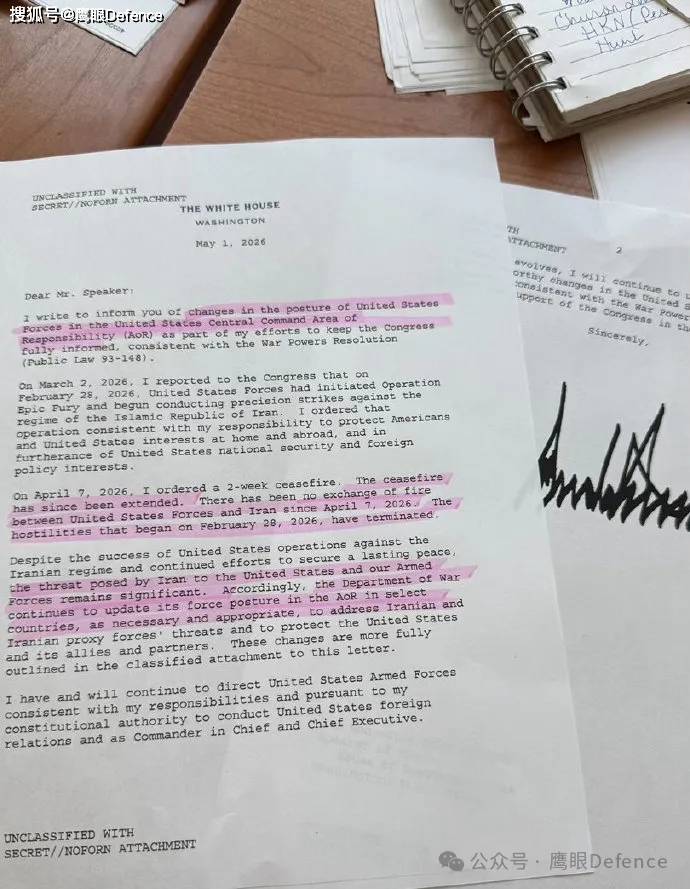 搜狐号@鹰眼Defence
HKN/
Hunt
UNCLASSIFIED WITH
SECRET//NOFORN ATTACHMENT
THE WHITE HOUSE
WASHINGTON
May 1, 2026
Dear Mr. Speaker:
I write to inform you of changes in the posture of United States
Forces in the United States Central Command Area of
Responsibility (AoR) as part of my efforts to keep the Congress
fully informed, consistent with the War Powers Resolution
(Public Law 93-148).
On March 2, 2026, I reported to the Congress that on
February 28, 2026, United States Forces had initiated Operation
Epic Fury and begun conducting precision strikes against the
regime of the Islamic Republic of Iran. I ordered that
operation consistent with my responsibility to protect Americans
and United States interests at home and abroad, and in
furtherance of United States national security and foreign
policy interests.
On April 7, 2026, I ordered a 2-week ceasefire. The ceasefire
has since been extended. There has been no exchange of fire
between United States Forces and Iran since April 7, 2026. The
hostilities that began on February 28, 2026, have terminated.
Despite the success of United States operations against the
Iranian regime and continued efforts to secure a lasting peace,
the threat posed by Iran to the United States and our Armed
Forces remains significant. Accordingly, the Department of War
continues to update its force posture in the AoR in select
countries, as necessary and appropriate, to address Iranian and
Iranian proxy forces' threats and to protect the United States
and its allies and partners. These changes are more fully
outlined in the classified attachment to this letter.
I have and will continue to direct United States Armed Forces
consistent with my responsibilities and pursuant to my
constitutional authority to conduct United States foreign
relations and as Commander in Chief and Chief Executive.
UNCLASSIFIED WITH
SECRET//NOFORN ATTACHMENT
TH
ATTACHMENT 2
evolves, I will continue to u
orthy changes in the United S
consistent with the War Power
upport of the Congress in the
Sincerely,
公众号 · 鹰眼Defence